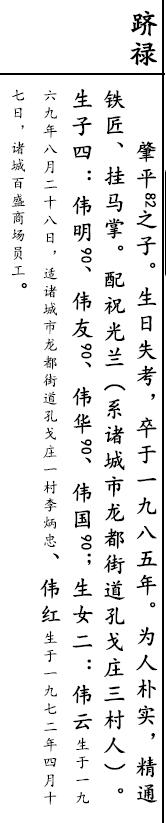 跻禄
肇平82之子。生日失考，卒于一九八五年。为人朴实，精通
铁匠、挂马掌。配祝光兰（系诸城市龙都街道孔戈庄三村人）。
生子四：伟明90、伟友90、伟华90、伟国90；生女二：伟云生于一九
六九年八月二十八日，适诸城市龙都街道孔戈庄一村李炳忠、伟红生于一九七二年四月十
七日，诸城百盛商场员工。